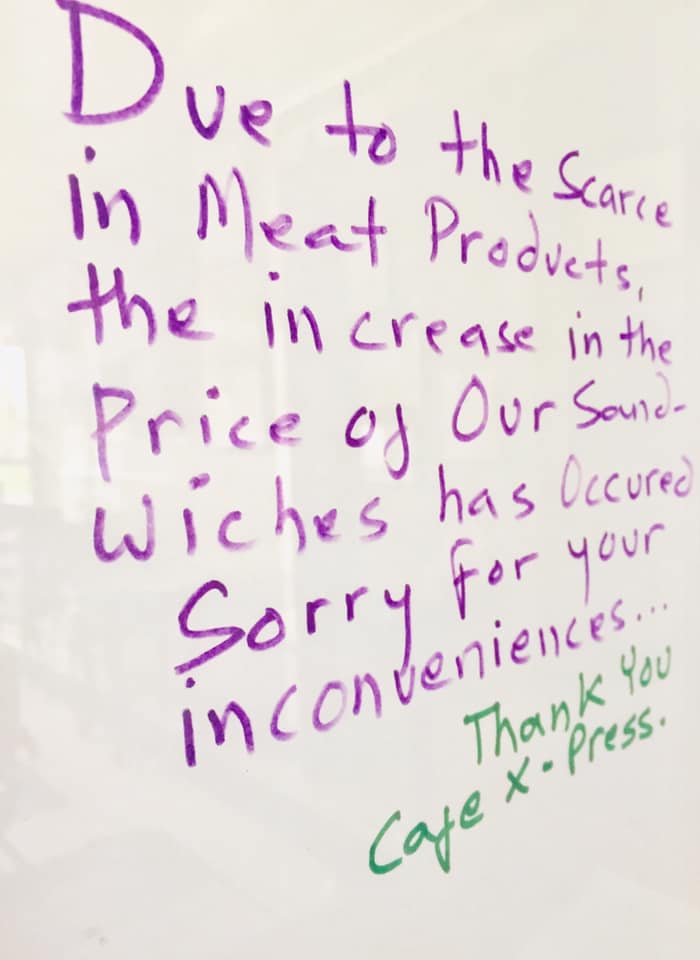 Due to the Scarce
in Meat Products,
the increase in the
Price of Our Sand-
wiches has Occured
Sorry for your
inconveniences...
Thank You
Cafe X-Press.